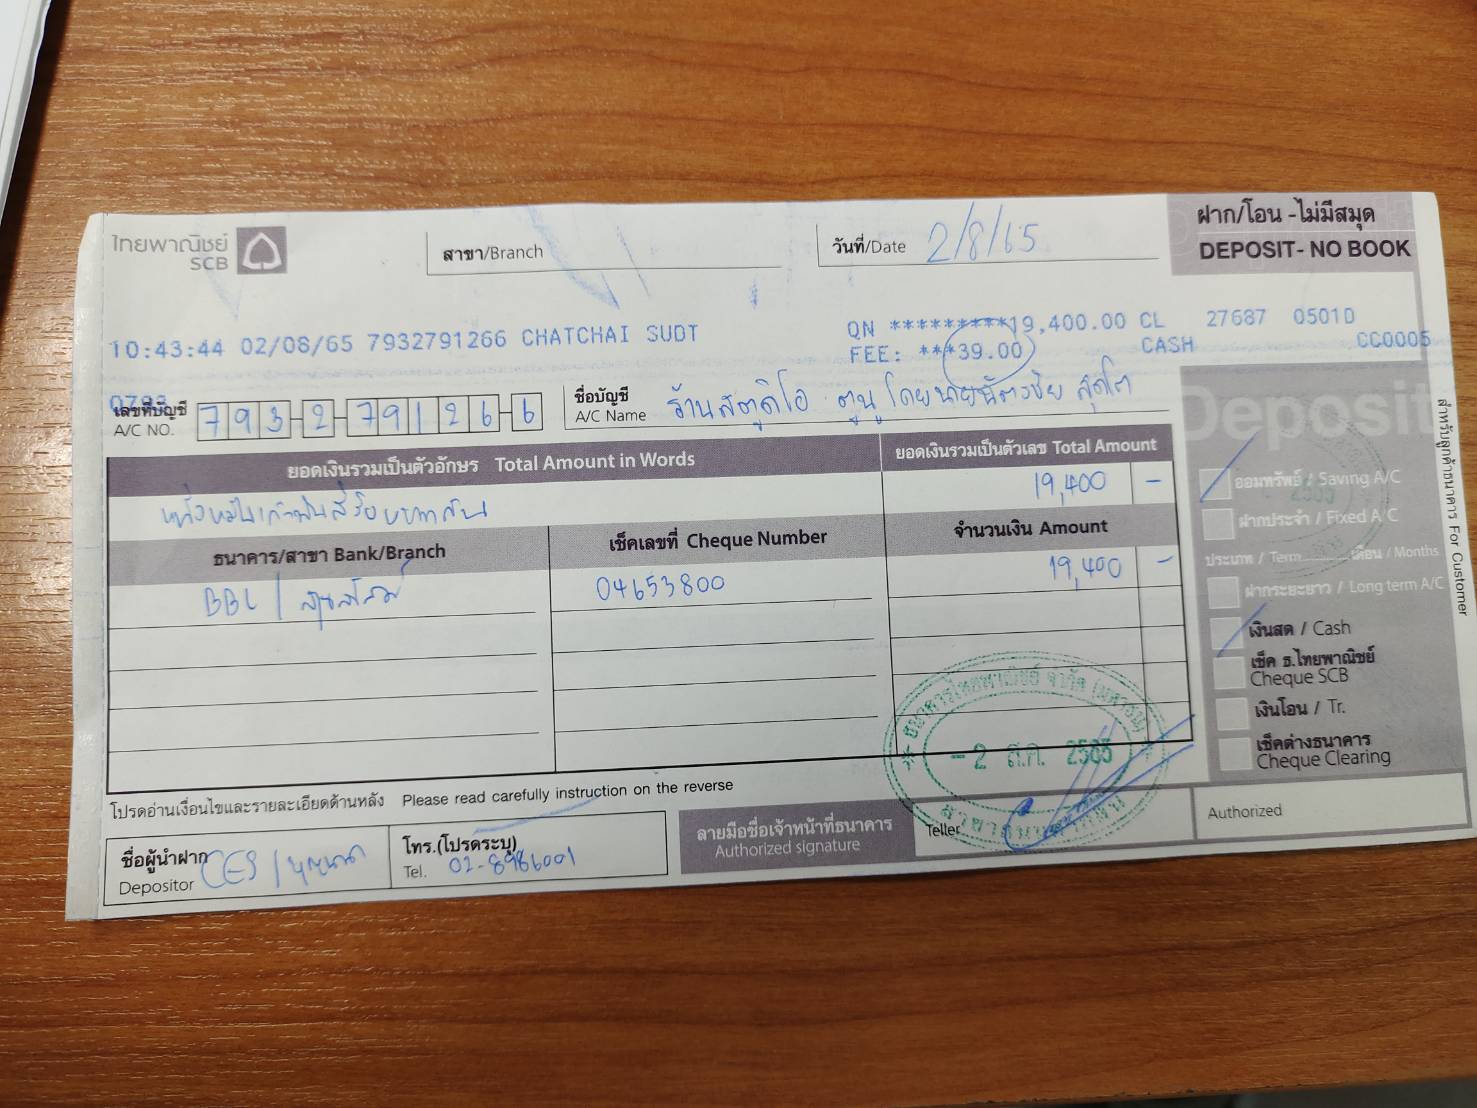 ไทยพาณิชย์
SCB
สาขา/Branch
วันที่/Date 2/8/65
ฝาก/โอน -ไม่มีสมุด
DEPOSIT- NO BOOK
10:43:44 02/08/65 7932791266 CHATCHAI SUDT QN **********19,400.00 CL 27687 0501D
FEE: ***39.00 CASH CC0005
0793
เลขที่บัญชี
A/C NO. 7 9 3 - 2 - 7 9 1 2 6 - 6
ชื่อบัญชี
A/C Name ร้านสตูดิโอ ตูนู โดยนายฉัตรชัย สุดโต
ยอดเงินรวมเป็นตัวอักษร Total Amount in Words
ยอดเงินรวมเป็นตัวเลข Total Amount
หนึ่งหมื่นเก้าพันสี่ร้อยบาทถ้วน
19,400 -
ธนาคาร/สาขา Bank/Branch
เช็คเลขที่ Cheque Number
จำนวนเงิน Amount
BBL /
04653800
19,400 -
Deposit
ออมทรัพย์ / Saving A/C
ฝากประจำ / Fixed A/C
ประเภท / Term เดือน / Months
ฝากระยะยาว / Long term A/C
เงินสด / Cash
เช็ค ธ.ไทยพาณิชย์
Cheque SCB
เงินโอน / Tr.
เช็คต่างธนาคาร
Cheque Clearing
สำหรับลูกค้าธนาคาร For Customer
ธนาคารไทยพาณิชย์ จำกัด (มหาชน)
- 2 ส.ค. 2565
โปรดอ่านเงื่อนไขและรายละเอียดด้านหลัง Please read carefully instruction on the reverse
ชื่อผู้นำฝาก
Depositor CES /
โทร.(โปรดระบุ)
Tel. 02-8986001
ลายมือชื่อเจ้าหน้าที่ธนาคาร
Authorized signature
Teller
Authorized